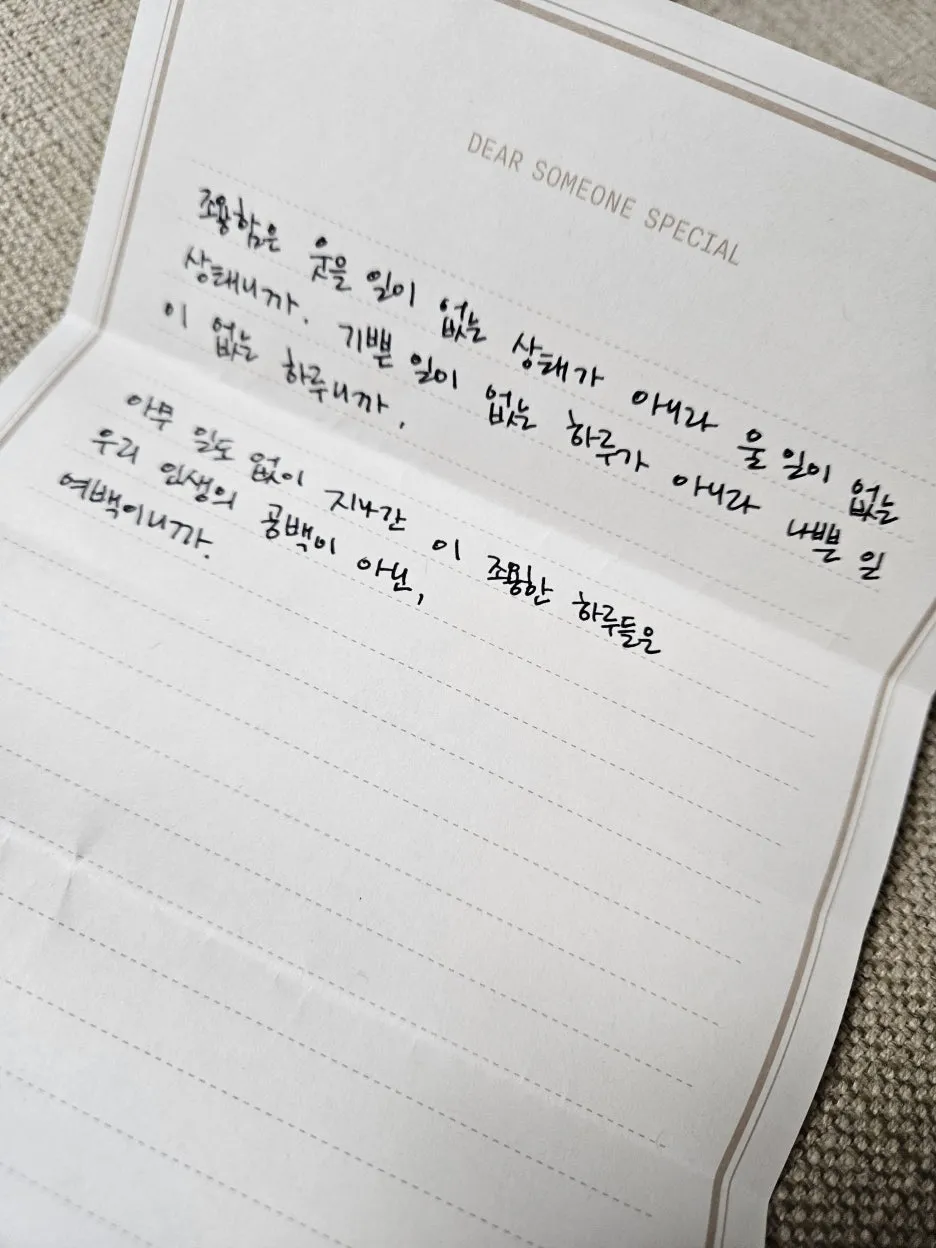 DEAR SOMEONE SPECIAL
조용함은 웃을 일이 없는 상태가 아니라 울 일이 없는
상태니까. 기쁜 일이 없는 하루가 아니라 나쁜 일
이 없는 하루니까.
아무 일도 없이 지나간 이 조용한 하루들은
우리 인생의 공백이 아닌,
여백이니까.